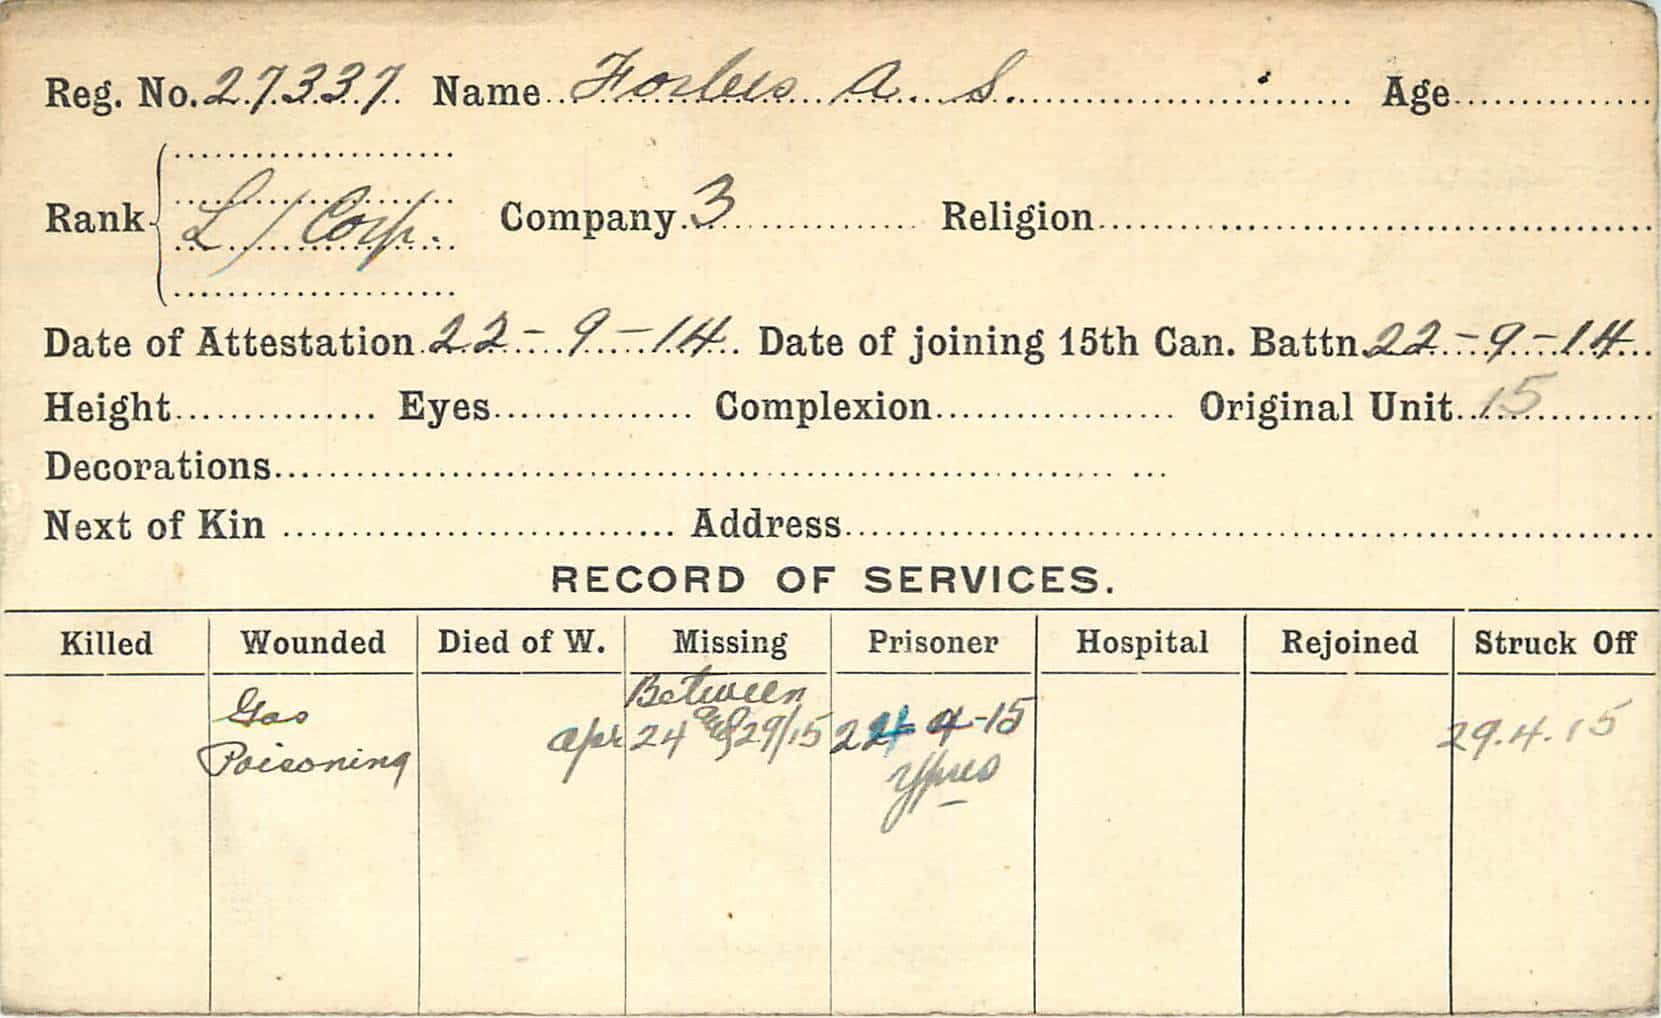 Reg. No. 27337 Name Forbes A. S. Age
Rank L/Corp. Company 3 Religion
Date of Attestation 22-9-14 Date of joining 15th Can. Battn. 22-9-14
Height Eyes Complexion Original Unit 15
Decorations
Next of Kin Address
RECORD OF SERVICES.
Killed Wounded Died of W. Missing Prisoner Hospital Rejoined Struck Off
Between
Gas apr 24 and 29/15 4-15 29.4.15
Poisoning Ypres